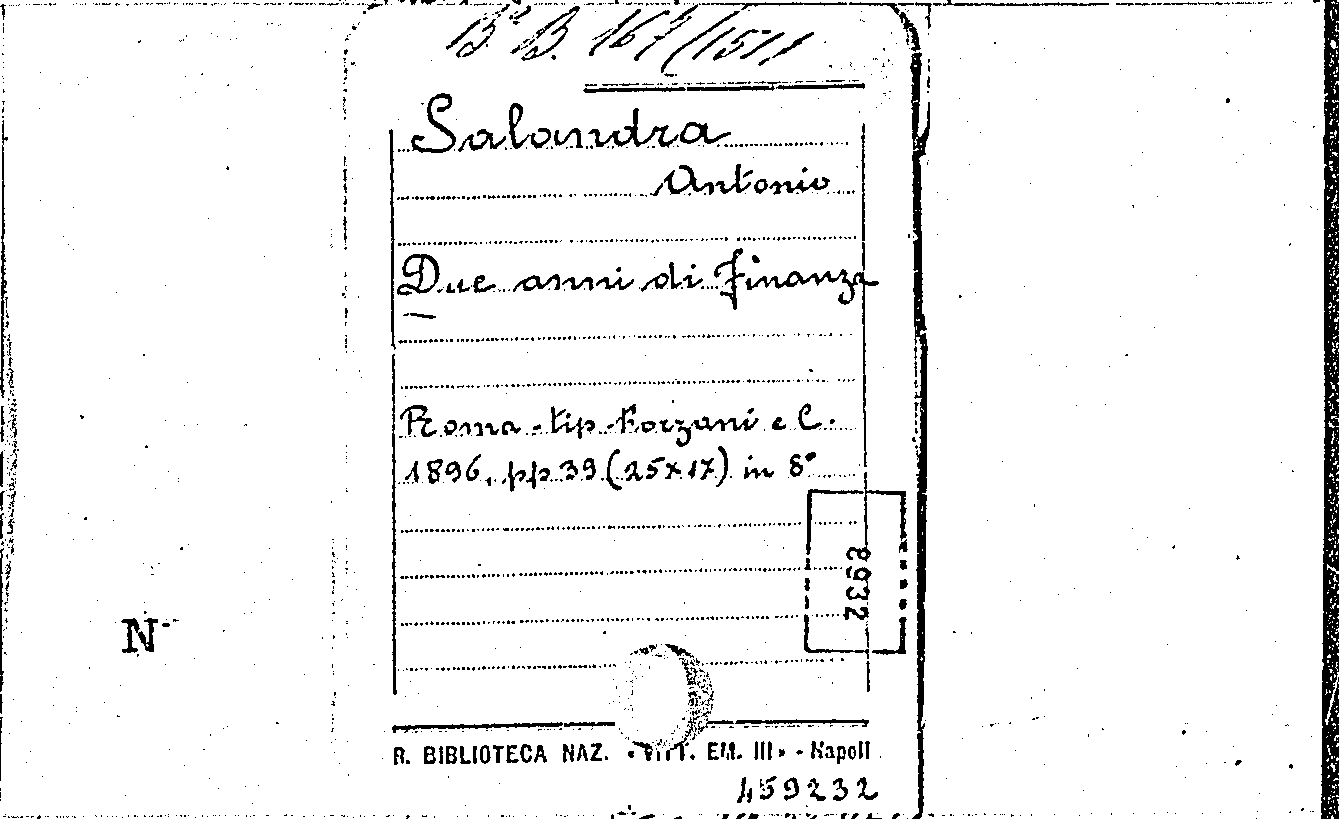 Bª B. 167/1511
Salandra
Antonio
Due anni di finanza
Roma - tip. Forzani e C.
1896, pp 39 (25x17) in 8°
8932
N
R. BIBLIOTECA NAZ. « VITT. EM. III » - Napoli
459232